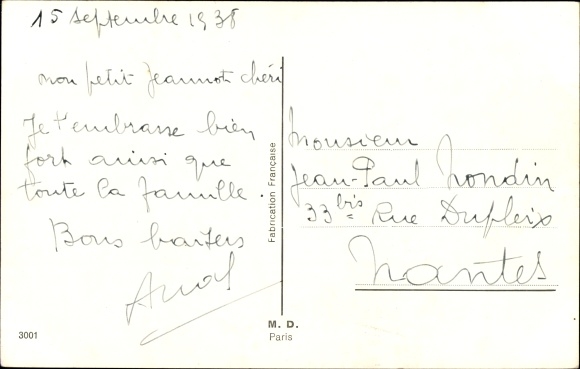 15 Septembre 1938
mon petit Jeannot chéri
Je t'embrasse bien
fort ainsi que
toute la famille.
Bons baisers
Monsieur
Jean-Paul Nondin
33 bis Rue Dupleix
Nantes
Fabrication Française
M. D.
Paris
3001